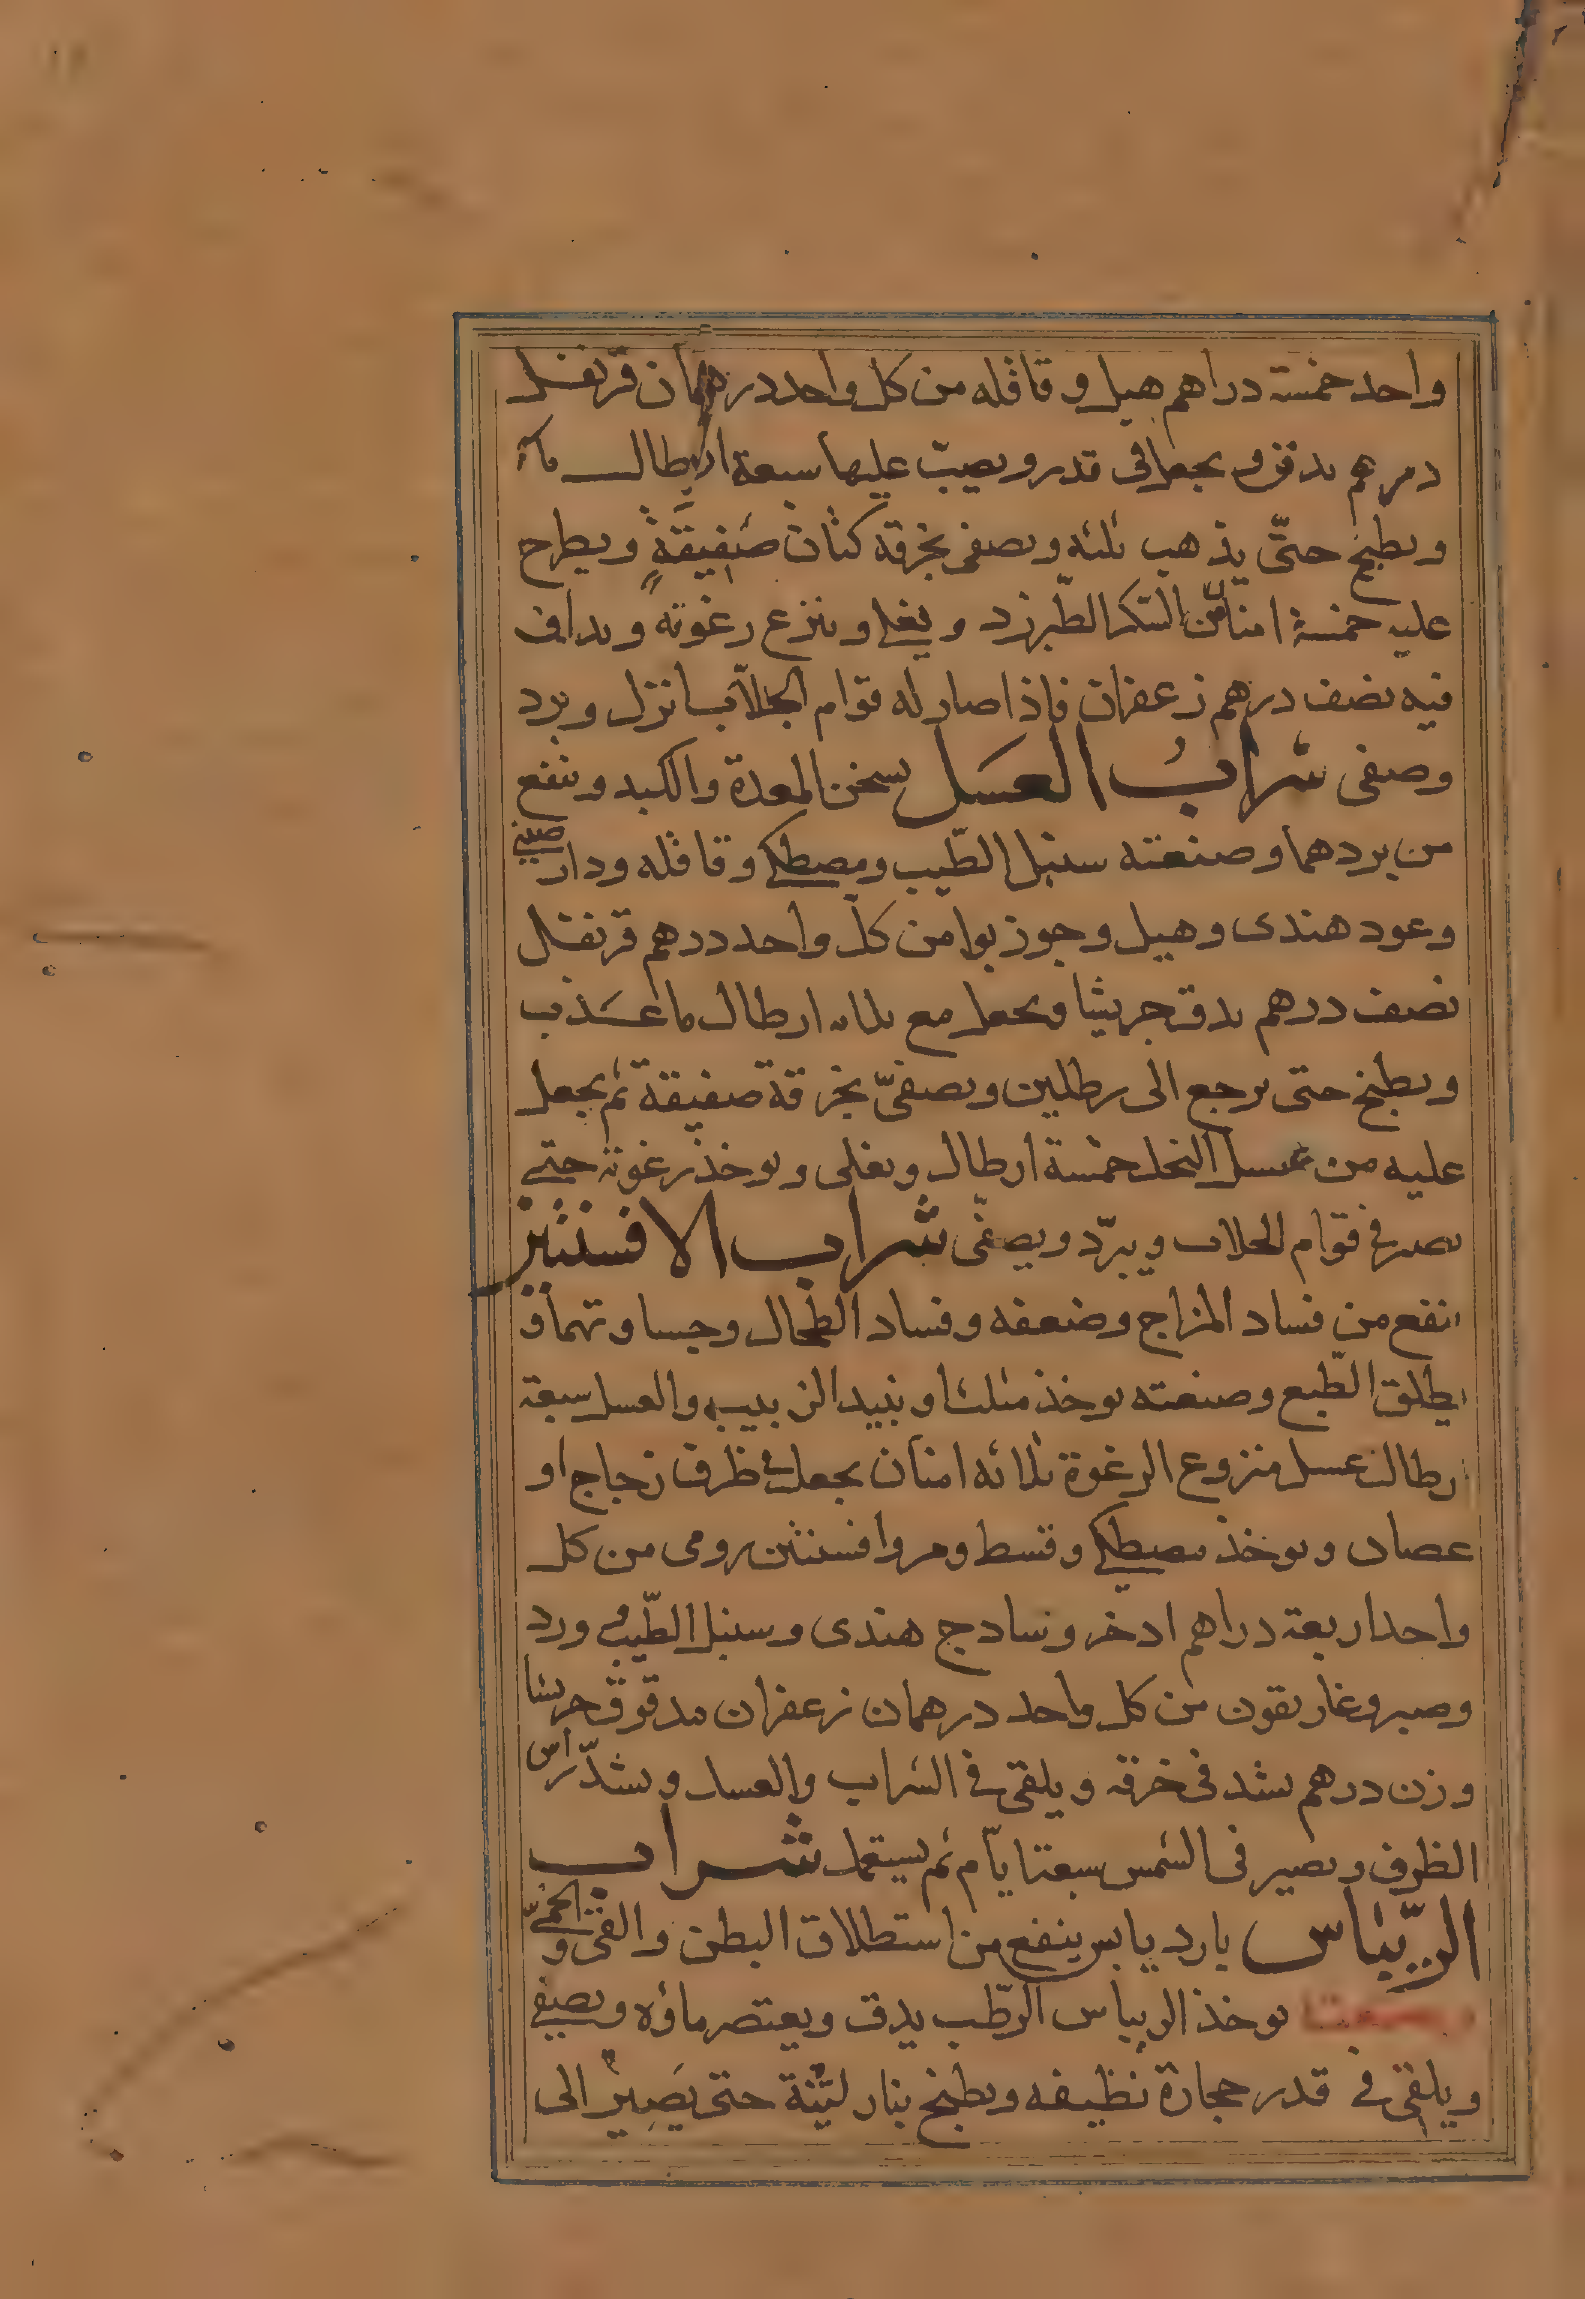 واحد خمسة دراهم هيل و قاقله من كل واحد درهمان قرنفل
درهم يدق و يجعل فى قدر و يصبّ عليها سبعة ارطال ماء
و يطبخ حتّى يذهب ثلثه و يصفى بخرقة كتان صفيقةٍ و يطرح
عليه خمسة امنا من السّكر الطّبرزد و يغلى و ينزع رغوته و يداف
فيه نصف درهم زعفران فاذا صار له قوام الجلاّب انزل و برد
و صفى شرابُ العسَل يسخن المعدة والكبد و ينفع
من بردهما و صنعته سنبل الطّيب و مصطكى و قاقله و دارصينى
و عود هندى و هيل و جوز بوا من كلّ واحد درهم قرنفل
نصف درهم يدق جريشا و يجعل مع ثلاثه ارطال ما عَذب
و يطبخ حتى يرجع الى رطلين و يصفىّ بخرقة صفيقة ثم يجعل
عليه من عسل النحل خمسة ارطال و يغلى و يوخذ رغوته حتى
يصير فى قوام الجلاب و يبرّد و يصفّى شراب الافسنتين
ينفع من فساد المزاج و ضعفه و فساد الطحال و جساوتهما و
يطلق الطّبع و صنعته يوخذ مثلثا و نبيد الزبيب والعسل سبعة
ارطال عسل منزوع الرغوة ثلاثه امنان يجعل فى ظرف زجاج او
عصار و يوخذ مصطكى و قسط و مر و افسنتين رومى من كل
واحد اربعة دراهم ادخر و سادج هندى و سنبل الطّيب و ورد
و صبر و غاريقون من كل واحد درهمان زعفران مدقوق جريشا
وزن درهم يشد فى خرقه و يلقى فى الشراب والعسل و يشدّ راس
الظرف و يصير فى الشمس سبعة ايّام ثم يستعمل شراب
الرّيباس بارد يابس ينفع من استطلاق البطن والقى و الحمّى
و صنعته يوخذ الريباس الرطّب يدق و يعتصر ماؤه و يصفى
و يلقى فى قدر حجارة نظيفه و يطبخ بنار ليّنة حتى يَصِير الى